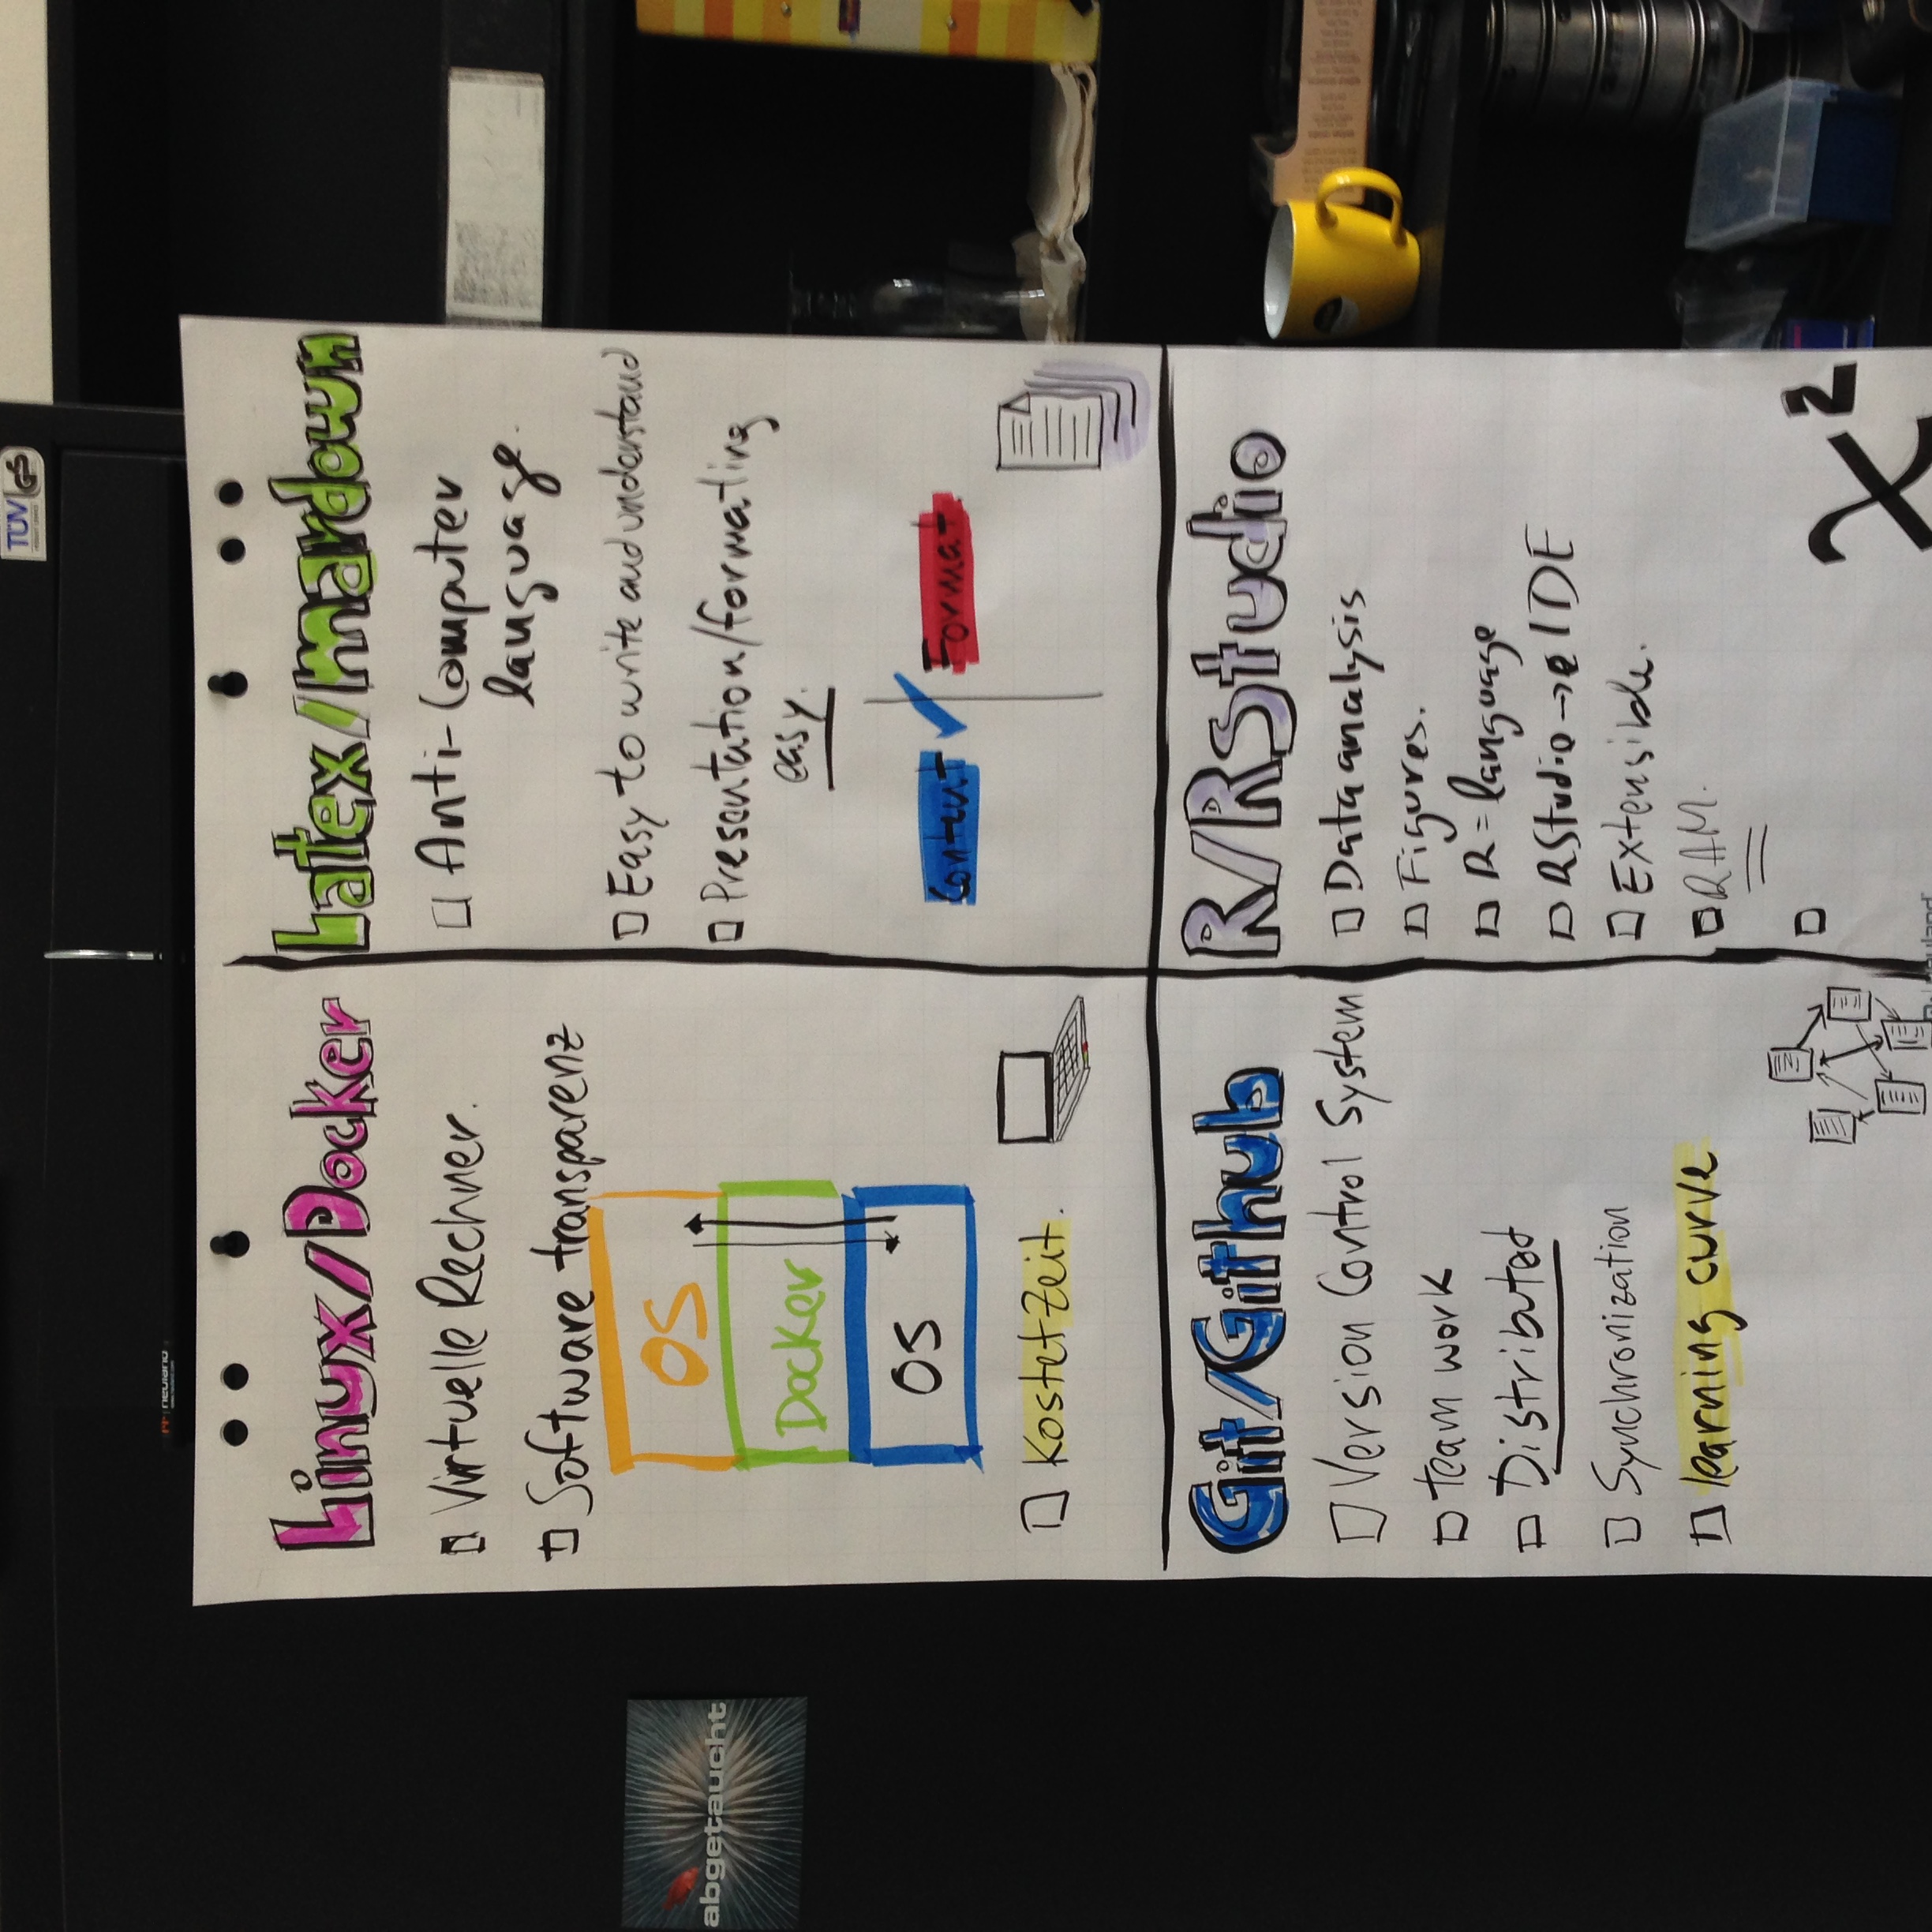 TÜV GS
neuland
www.neuland.com
Linux/Docker
Virtuelle Rechner.
Software transparenz
OS
Docker
OS
Kostet Zeit.
Latex/mardown
Anti-Computer
language.
Easy to write and understand
Presentation/formating
easy.
Content ✓ Format
abgetaucht
Git/Github
Version Control System
team work
Distributed
Synchronization
learning curve
R/RStudio
Data analysis
Figures.
R = language
RStudio → IDE
Extensible.
RAM.
χ²
neuland